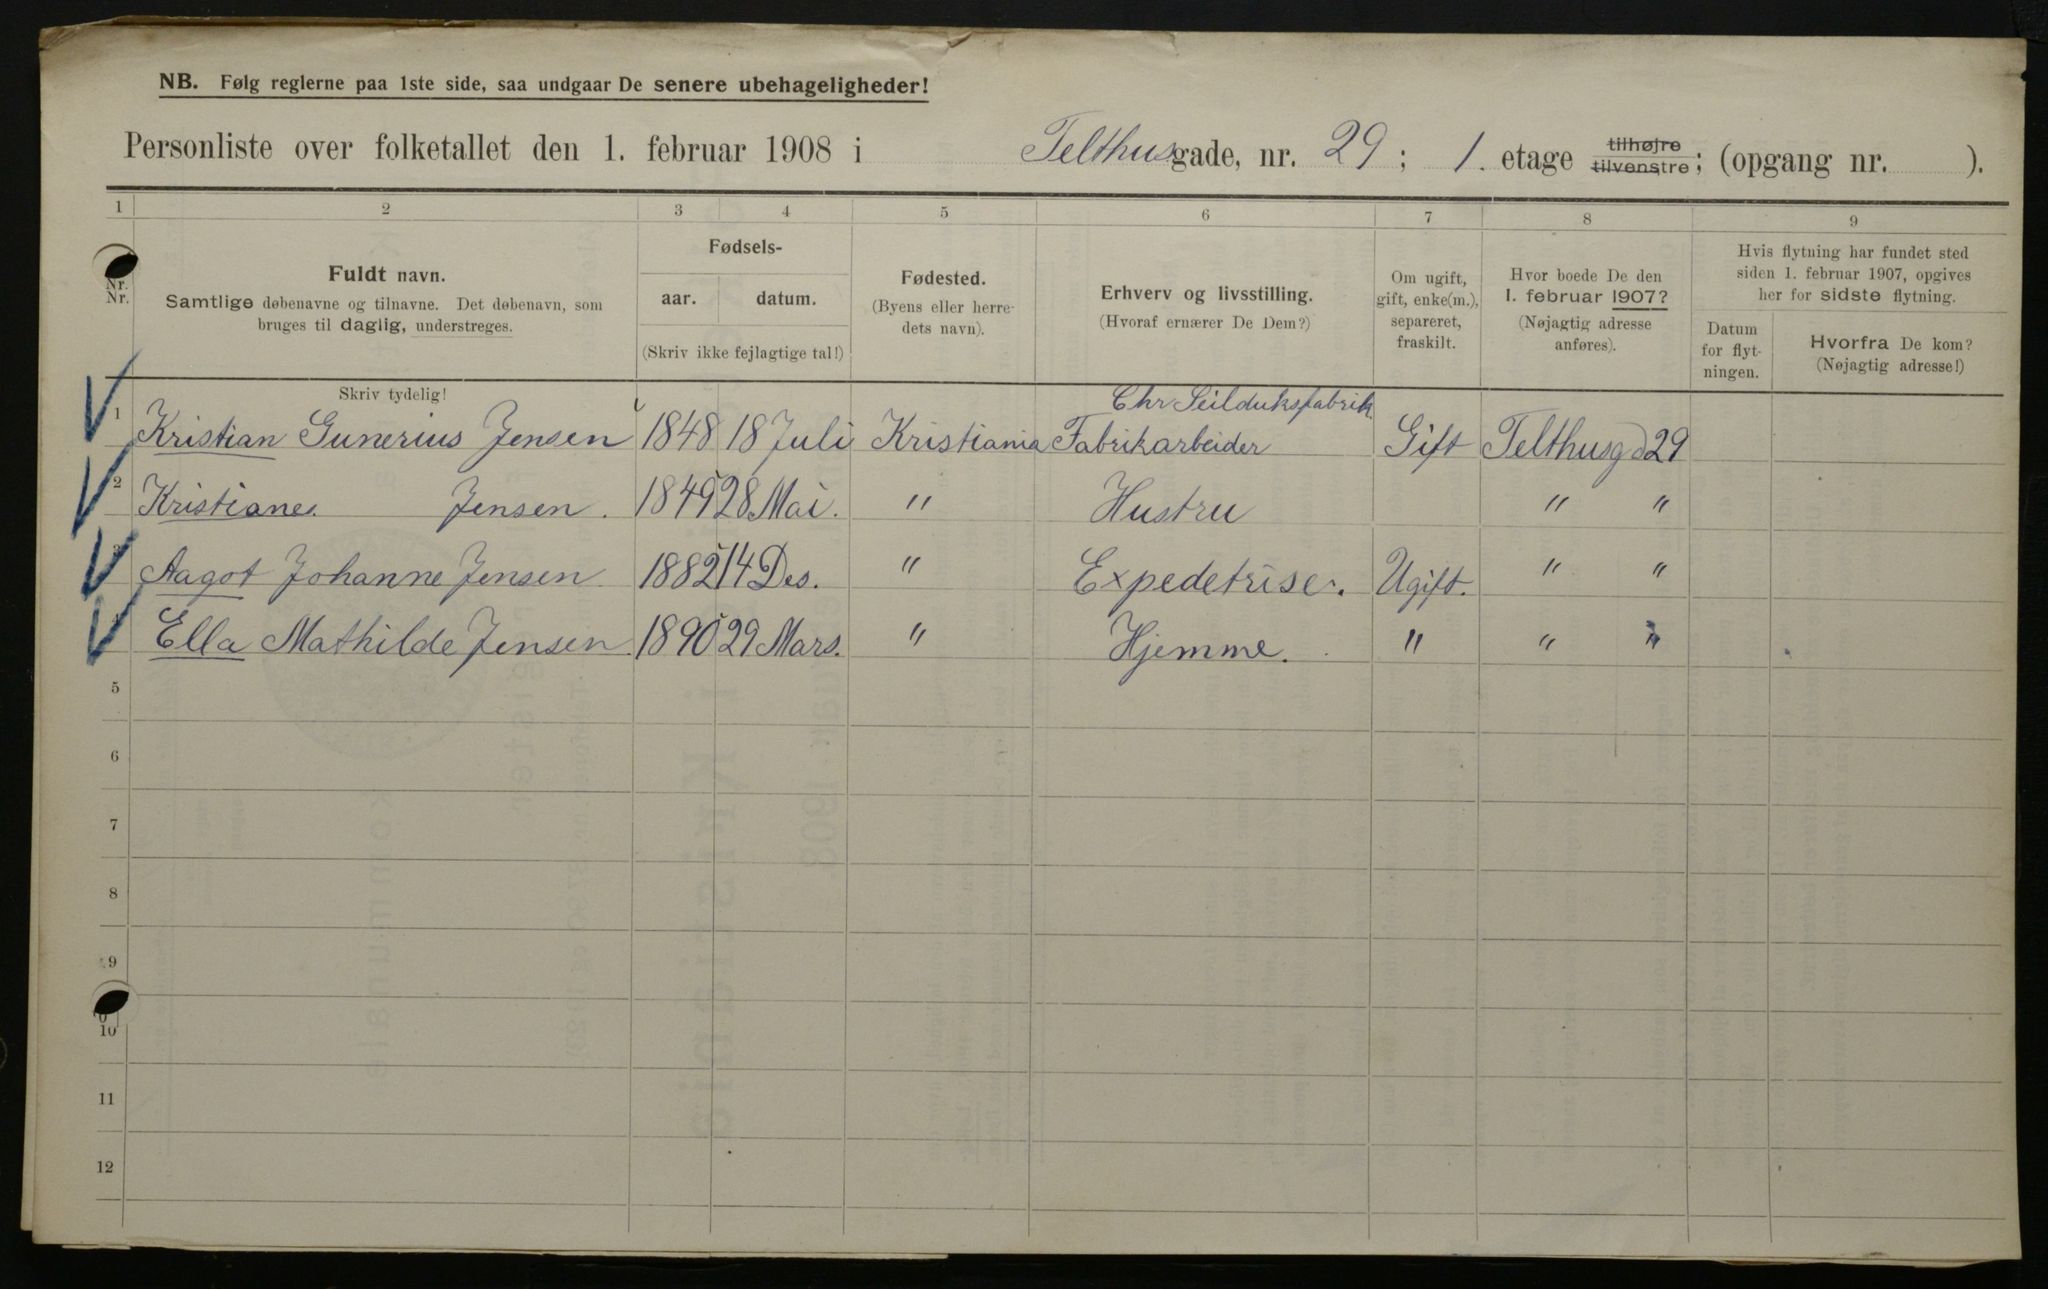 NB. Følg reglerne paa 1ste side, saa undgaar De senere ubehageligheder!
Personliste over folketallet den 1. februar 1908 i Telthusgade, nr. 29; 1. etage tilhøjre tilvenstre; (opgang nr. ).
1 2 3 4 5 6 7 8 9
Nr. Nr.
Fuldt navn.
Samtlige døbenavne og tilnavne. Det døbenavn, som
bruges til daglig, understreges.
Fødsels-
aar. datum.
(Skriv ikke fejlagtige tal!)
Fødested.
(Byens eller herre-
dets navn).
Erhverv og livsstilling.
(Hvoraf ernærer De Dem?)
Om ugift,
gift, enke(m.),
separeret,
fraskilt.
Hvor boede De den
1. februar 1907?
(Nøjagtig adresse
anføres).
Hvis flytning har fundet sted
siden 1. februar 1907, opgives
her for sidste flytning.
Datum
for flyt-
ningen.
Hvorfra De kom?
(Nøjagtig adresse!)
Skriv tydelig!
Chr Seilduksfabrik
1 Kristian Gunerius Jensen 1848 18 Juli Kristiania Fabrikarbeider Gift Telthusgd 29
2 Kristiane. Jensen. 1849 28 Mai. " Hustru " "
3 Aagot Johanne Jensen 1882 14 Des. " Expedetrise. Ugift. " "
Ella Mathilde Jensen. 1890 29 Mars. " Hjemme. " " "
5
6
7
8
9
10
11
12